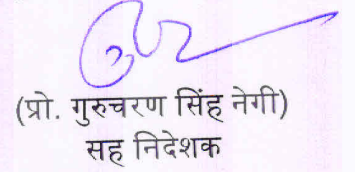 (प्रो. गुरुचरण सिंह नेगी)
सह निदेशक